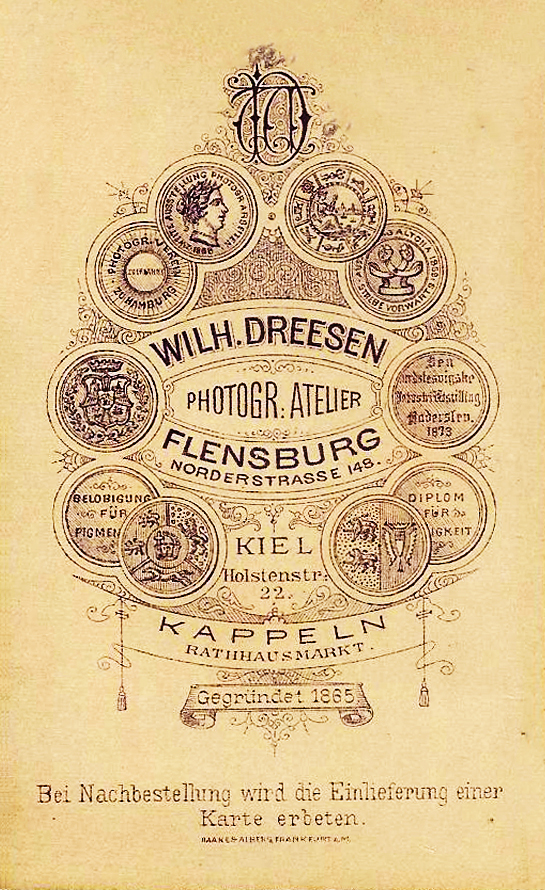 WD
AUSSTELLUNG PHOTOGR. ARBEITEN
1868
PHOTOGR. VEREIN
ZU HAMBURG
ALTONA 1869
STREBE VORWÄRTS
WILH. DREESEN
PHOTOGR. ATELIER
FLENSBURG
NORDERSTRASSE 148.
Den
Haderslev.
1873
BELOBIGUNG
FÜR
PIGMEN
DIPLOM
FÜR
IGKEIT
KIEL
Holstenstr.
22.
KAPPELN
RATHHAUSMARKT.
Gegründet 1865
Bei Nachbestellung wird die Einlieferung einer
Karte erbeten.
HAAKE & ALBERS, FRANKFURT a. M.